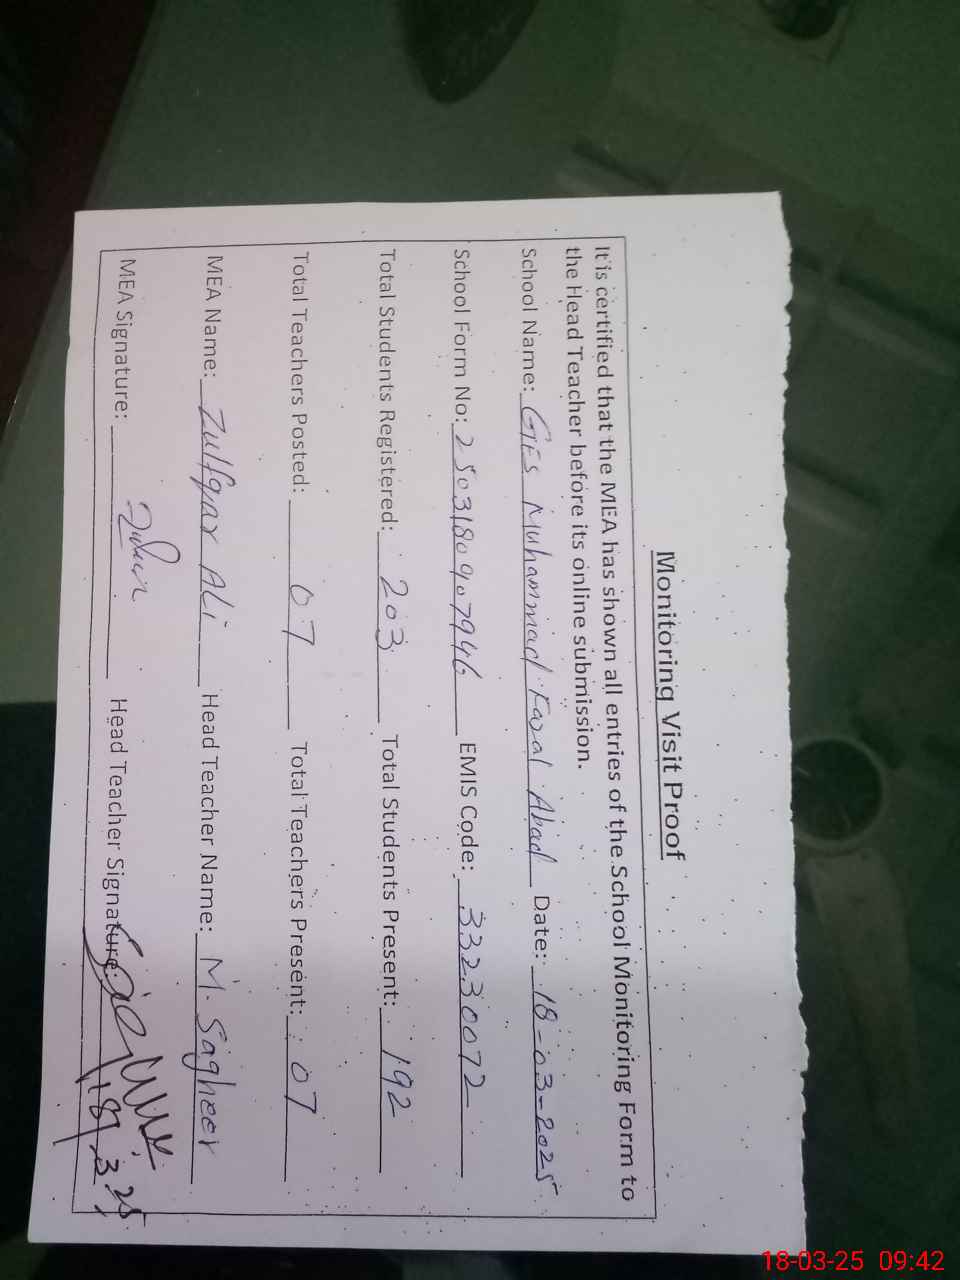 Monitoring Visit Proof
It is certified that the MEA has shown all entries of the School Monitoring Form to
the Head Teacher before its online submission.
School Name: GES Muhammad Fazal Abad Date: 18-03-2025
School Form No: 2503180907946 EMIS Code: 33230072
Total Students Registered: 203 Total Students Present: 192
Total Teachers Posted: 07 Total Teachers Present: 07
MEA Name: Zulfqar Ali Head Teacher Name: M. Sagheer
MEA Signature: Head Teacher Signature:
18.3.25
18-03-25 09:42